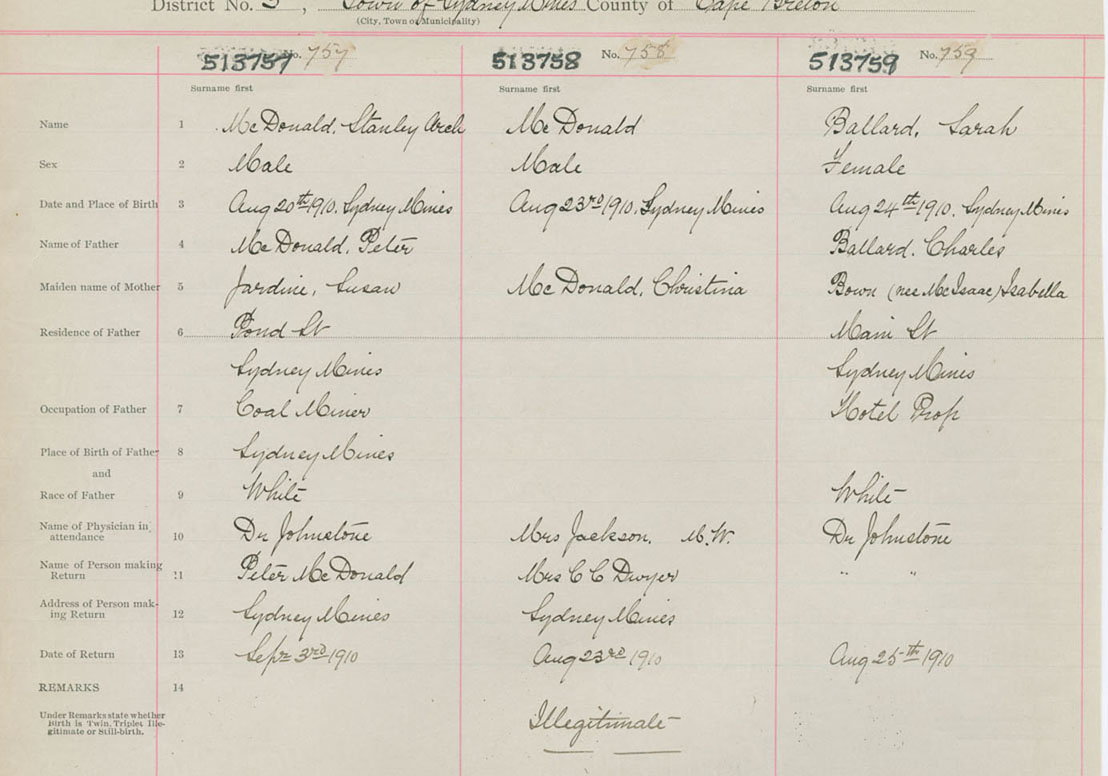 District No. 3, Town of Sydney Mines County of Cape Breton
(City, Town of Municipality)
513757 No. 757 513758 No. 758 513759 No. 759
Surname first Surname first Surname first
Name 1 McDonald, Stanley Arch McDonald Ballard, Sarah
Sex 2 Male Male Female
Date and Place of Birth 3 Aug 20th 1910, Sydney Mines Aug 23rd 1910, Sydney Mines Aug 24th 1910, Sydney Mines
Name of Father 4 McDonald, Peter Ballard, Charles
Maiden name of Mother 5 Jardine, Susan McDonald, Christina Bown (nee McIsaac) Isabella
Residence of Father 6 Pond St Main St
Sydney Mines Sydney Mines
Occupation of Father 7 Coal Miner Hotel Prop
Place of Birth of Father 8 Sydney Mines
and
Race of Father 9 White White
Name of Physician in
attendance 10 Dr Johnstone Mrs Jackson, M.W. Dr Johnstone
Name of Person making
Return 11 Peter McDonald Mrs C C Dwyer " "
Address of Person mak-
ing Return 12 Sydney Mines Sydney Mines
Date of Return 13 Sepr 3rd 1910 Aug 23rd 1910 Aug 25th 1910
REMARKS 14
Under Remarks state whether
Birth is Twin, Triplet Ille-
gitimate or Still-birth.
Illegitimate